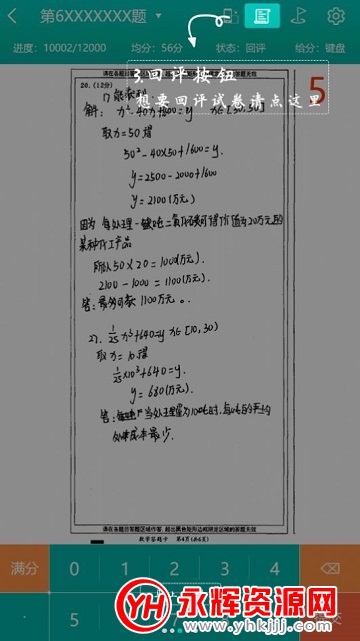 第6XXXXXXX题
进度：10002/12000 均分：56分 状态：回评 给分：键盘
请在各题目答题区域内作答，超出黑色矩形边框限定区域的答案无效
3.回评按钮
想要回评试卷请点这里
5
20.（12分）
解：
取x=50得
50²-40×50+1600=y.
y=2500-2000+1600
y=2100(万元)
因为
某种化工产品
所以50×20=1000(万元).
2100-1000=1100(万元).
答：最少亏损1100万元。
2).1/25x³+640=y x∈[10,30)
取x=10得
1/25×10³+640=y.
y=680(万元).
答：当处理量为10吨时,
处理成本最少.
请在各题目答题区域内作答，超出黑色矩形边框限定区域的答题无效
数学答题卡 第4页(共6页)
满分 0 1 2 3 4
5
YH 永辉资源网
www.yhkjjj.com